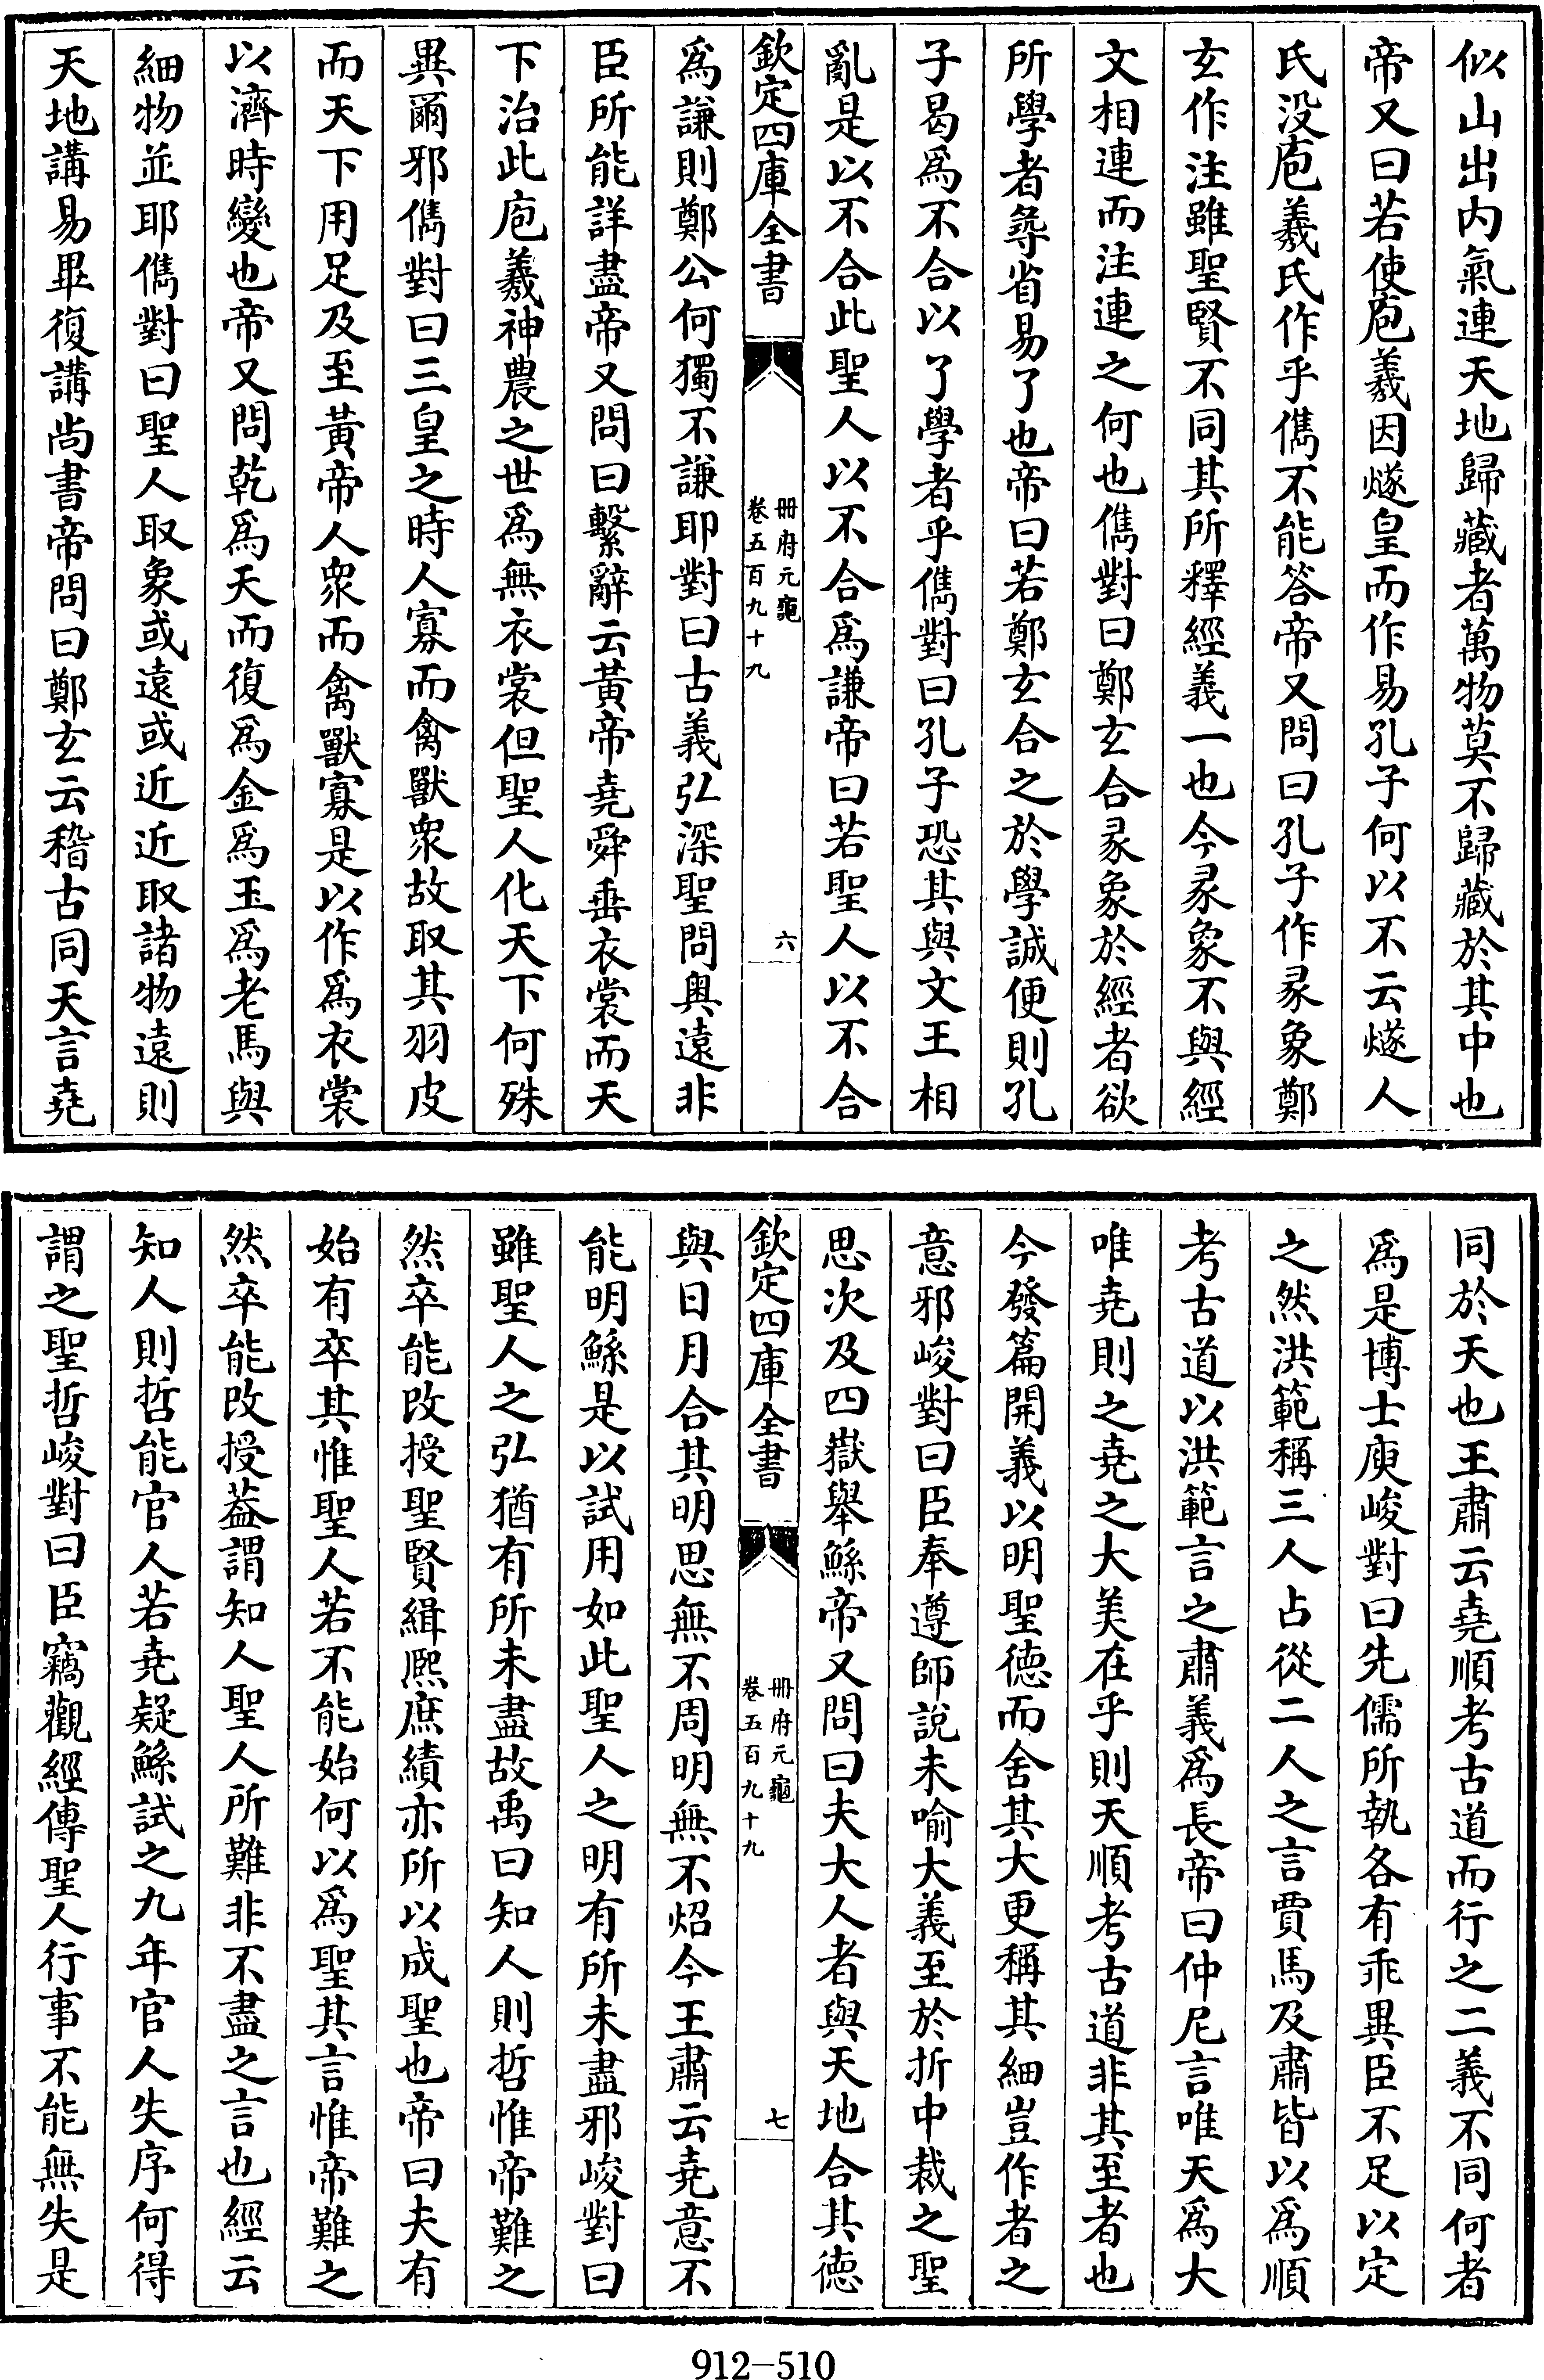 似山出内氣連天地歸藏者萬物莫不歸藏於其中也
帝又曰若使庖羲因燧皇而作易孔子何以不云燧人
氏没庖羲氏作乎儁不能答帝又問曰孔子作彖象鄭
玄作注雖聖賢不同其所釋經義一也今彖象不與經
文相連而注連之何也儁對曰鄭玄合彖象於經者欲
所學者尋省易了也帝曰若鄭玄合之於學誠便則孔
子曷爲不合以了學者乎儁對曰孔子恐其與文王相
亂是以不合此聖人以不合爲謙帝曰若聖人以不合
欽定四庫全書
册府元龜
卷五百九十九
六
爲謙則鄭公何獨不謙耶對曰古義弘深聖問奥遠非
臣所能詳盡帝又問曰繫辭云黄帝堯舜垂衣裳而天
下治此庖羲神農之世爲無衣裳但聖人化天下何殊
異爾邪儁對曰三皇之時人寡而禽獸衆故取其羽皮
而天下用足及至黄帝人衆而禽獸寡是以作爲衣裳
以濟時變也帝又問乾爲天而復爲金爲玉爲老馬與
細物並耶儁對曰聖人取象或遠或近近取諸物遠則
天地講易畢復講尚書帝問曰鄭玄云稽古同天言堯
同於天也王肅云堯順考古道而行之二義不同何者
爲是博士庾峻對曰先儒所執各有乖異臣不足以定
之然洪範稱三人占從二人之言賈馬及肅皆以爲順
考古道以洪範言之肅義爲長帝曰仲尼言唯天爲大
唯堯則之堯之大美在乎則天順考古道非其至者也
今發篇開義以明聖德而舍其大更稱其細豈作者之
意邪峻對曰臣奉遵師說未喻大義至於折中裁之聖
思次及四嶽舉鯀帝又問曰夫大人者與天地合其德
欽定四庫全書
册府元龜
卷五百九十九
七
與日月合其明思無不周明無不炤今王肅云堯意不
能明鯀是以試用如此聖人之明有所未盡邪峻對曰
雖聖人之弘猶有所未盡故禹曰知人則哲惟帝難之
然卒能改授聖賢緝熙庶績亦所以成聖也帝曰夫有
始有卒其惟聖人若不能始何以爲聖其言惟帝難之
然卒能改授葢謂知人聖人所難非不盡之言也經云
知人則哲能官人若堯疑鯀試之九年官人失序何得
謂之聖哲峻對曰臣竊觀經傳聖人行事不能無失是
912-510